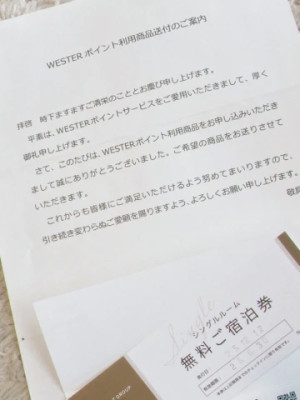 WESTER ポイント利用商品送付のご案内
拝啓　時下ますますご清栄のこととお慶び申し上げます。
平素は、WESTERポイントサービスをご愛用いただきまして、厚く
御礼申し上げます。
さて、このたびは、WESTERポイント利用商品をお申し込みいただき
まして誠にありがとうございました。ご希望の商品をお送りさせて
いただきます。
これからも皆様にご満足いただけるよう努めてまいりますので、
引き続き変わらぬご愛顧を賜りますよう、よろしくお願い申し上げます。
敬具
シングルルーム
無料ご宿泊券
GROUP